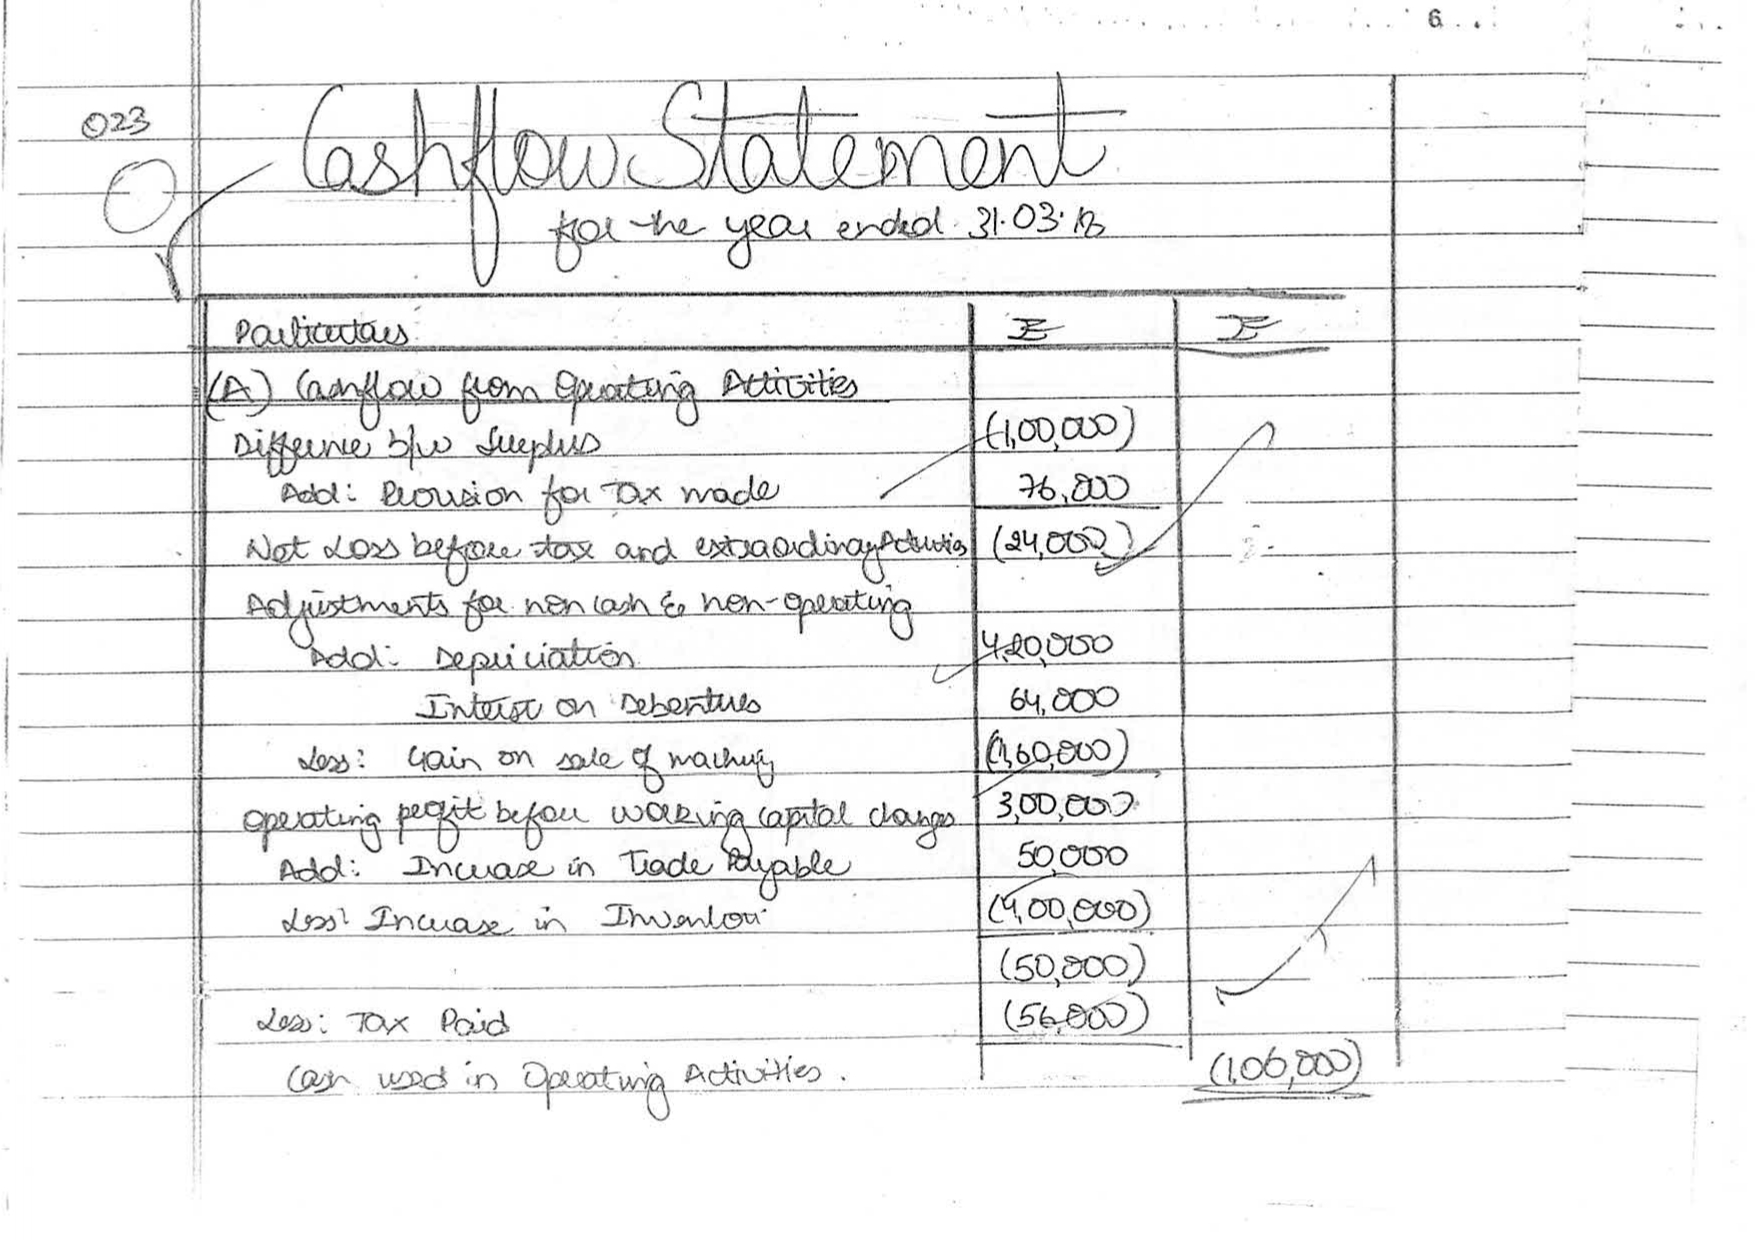 6
023
Cashflow Statement
for the year ended 31.03.18
Particulars ₹ ₹
(A) Cashflow from Operating Activities
Difference b/w Surplus (1,00,000)
Add: Provision for Tax made 76,000
Net Loss before tax and extraordinary Activities (24,000)
Adjustments for non cash & non-operating
Add: Depriciation 4,20,000
Interest on Debentures 64,000
Less: Gain on sale of machinery (1,60,000)
Operating profit before working capital changes 3,00,000
Add: Increase in Trade Payable 50,000
Less: Increase in Inventori (4,00,000)
(50,000)
Less: Tax Paid (56,000)
Cash used in Operating Activities. (1,06,000)